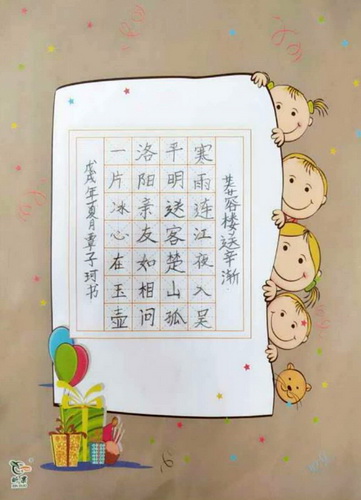 芙蓉楼送辛渐
寒雨连江夜入吴
平明送客楚山孤
洛阳亲友如相问
一片冰心在玉壶
戊戌年夏月覃子珂书